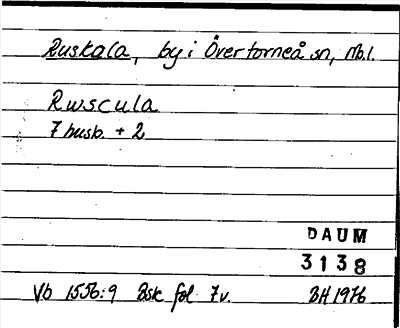 Ruskala, by i Övertorneå sn, Nb.l.
Rwscula
7 husb. + 2
DAUM
3138
Vb 1556:9 Bsk fol 7v. BH 1976